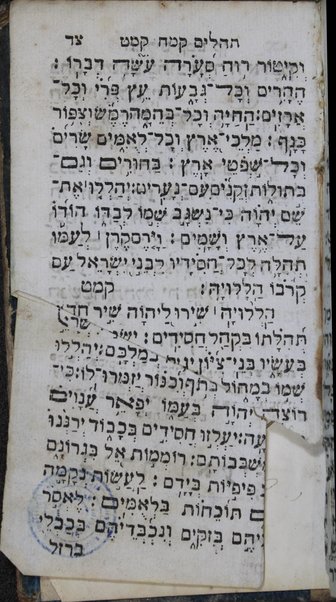 תהלים קמח קמט צד
וְקִיטוֹר רוּחַ סְעָרָה עֹשָׂה דְבָרוֹ:
הֶהָרִים וְכָל־גְּבָעוֹת עֵץ פְּרִי וְכָל־
אֲרָזִים: הַחַיָּה וְכָל־בְּהֵמָה רֶמֶשׂ וְצִפּוֹר
כָּנָף: מַלְכֵי־אֶרֶץ וְכָל־לְאֻמִּים שָׂרִים
וְכָל־שֹׁפְטֵי אָרֶץ: בַּחוּרִים וְגַם־
בְּתוּלוֹת זְקֵנִים עִם־נְעָרִים: יְהַלְלוּ אֶת־
שֵׁם יְהוָֹה כִּי־נִשְׂגָּב שְׁמוֹ לְבַדּוֹ הוֹדוֹ
עַל־אֶרֶץ וְשָׁמָיִם: וַיָּרֶם קֶרֶן לְעַמּוֹ
תְּהִלָּה לְכָל־חֲסִידָיו לִבְנֵי יִשְׂרָאֵל עַם
קְרֹבוֹ הַלְלוּיָהּ: קמט
הַלְלוּיָהּ שִׁירוּ לַיהוָֹה שִׁיר חָדָשׁ
תְּהִלָּתוֹ בִּקְהַל חֲסִידִים:
בְּעֹשָׂיו בְּנֵי־צִיּוֹן יָגִילוּ בְמַלְכָּם: יְהַלְלוּ
שְׁמוֹ בְמָחוֹל בְּתֹף וְכִנּוֹר יְזַמְּרוּ־לוֹ: כִּי־
רוֹצֶה יְהוָֹה בְּעַמּוֹ יְפָאֵר עֲנָוִים
עָה: יַעְלְזוּ חֲסִידִים בְּכָבוֹד יְרַנְּנוּ
מִשְׁכְּבוֹתָם: רוֹמְמוֹת אֵל בִּגְרוֹנָם
פִּיפִיּוֹת בְּיָדָם: לַעֲשׂוֹת נְקָמָה
ם תּוֹכֵחוֹת בַּלְאֻמִּים: לֶאְסֹר
יהֶם בְּזִקִּים וְנִכְבְּדֵיהֶם בְּכַבְלֵי
ברזל